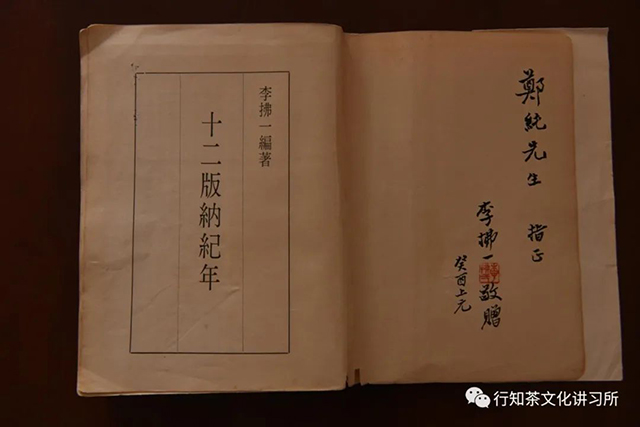 鄭純先生 指正
李拂一 敬贈
癸酉上元
李拂一編著
十二版納紀年
行知茶文化讲习所